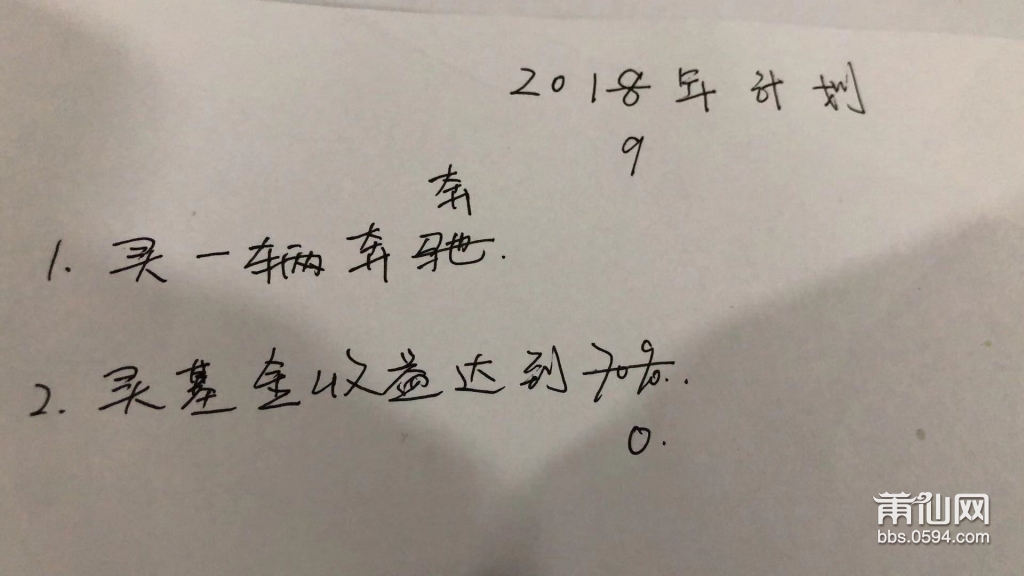 2018年计划
9
奔
1. 买一辆奔驰.
2. 买基金收益达到70%..
0.
莆仙网
bbs.0594.com